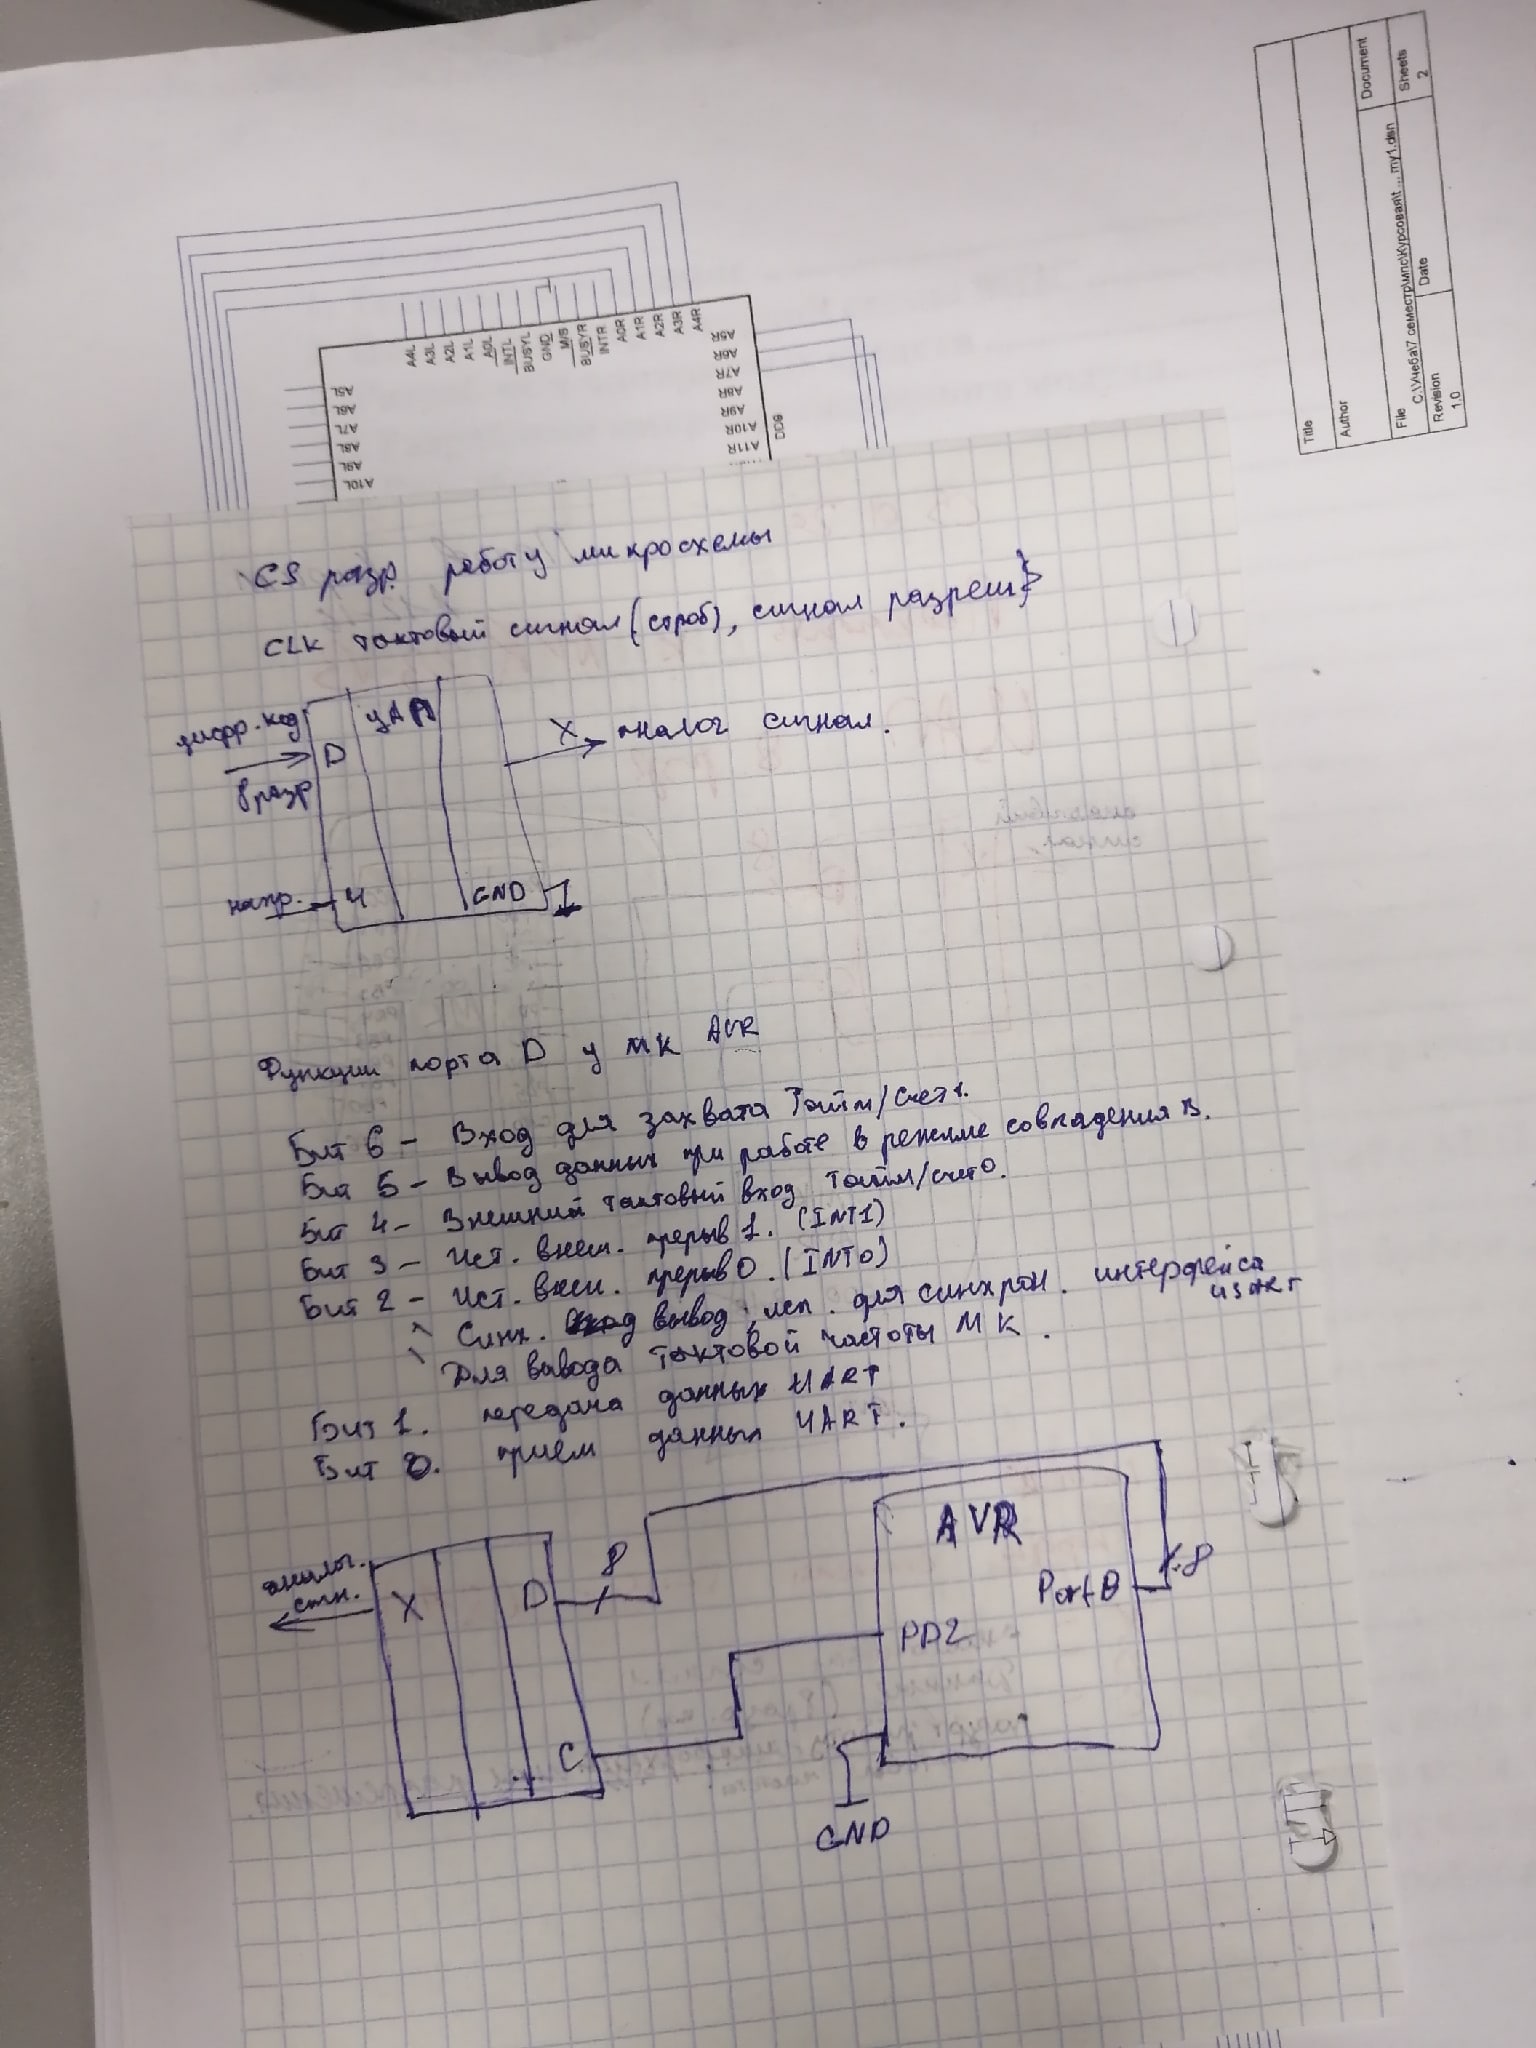 Title
Author
File C:\Учеба\7 семестр\мпс\Курсовая\t ... my1.dsn
Document
Revision
1.0
Date
Sheets
2
A4L
A3L
A2L
A1L
A0L
INTL
BUSYL
GND
M/S
BUSYR
INTR
A0R
A1R
A2R
A3R
A4R
A5L
A6L
A7L
A8L
A9L
A10L
A5R
A6R
A7R
A8R
A9R
A10R
A11R
DD9
CS разр. работу микросхемы
CLK тактовый сигнал (строб), сигнал разреш}
цифр. код
8 разр
D
ЦАП
X аналог сигнал.
напр.
U
GND
Функции порта D у МК AVR
Бит 6 – Вход для захвата Тайм/Счет1.
Бит 5 – Вывод данных при работе в режиме совпадения В.
Бит 4 – Внешний тактовый вход Тайм/счет0.
Бит 3 – Ист. внеш. прерыв 1. (INT1)
Бит 2 – Ист. внеш. прерыв 0. (INT0)
Синх. вывод, исп. для синхрон. интерфейса USART
Для вывода тактовой частоты МК.
Бит 1. передача данных UART
Бит 0. прием данных UART.
аналог.
сигн.
X
D
8
C
AVR
Port B
8
PD2
GND